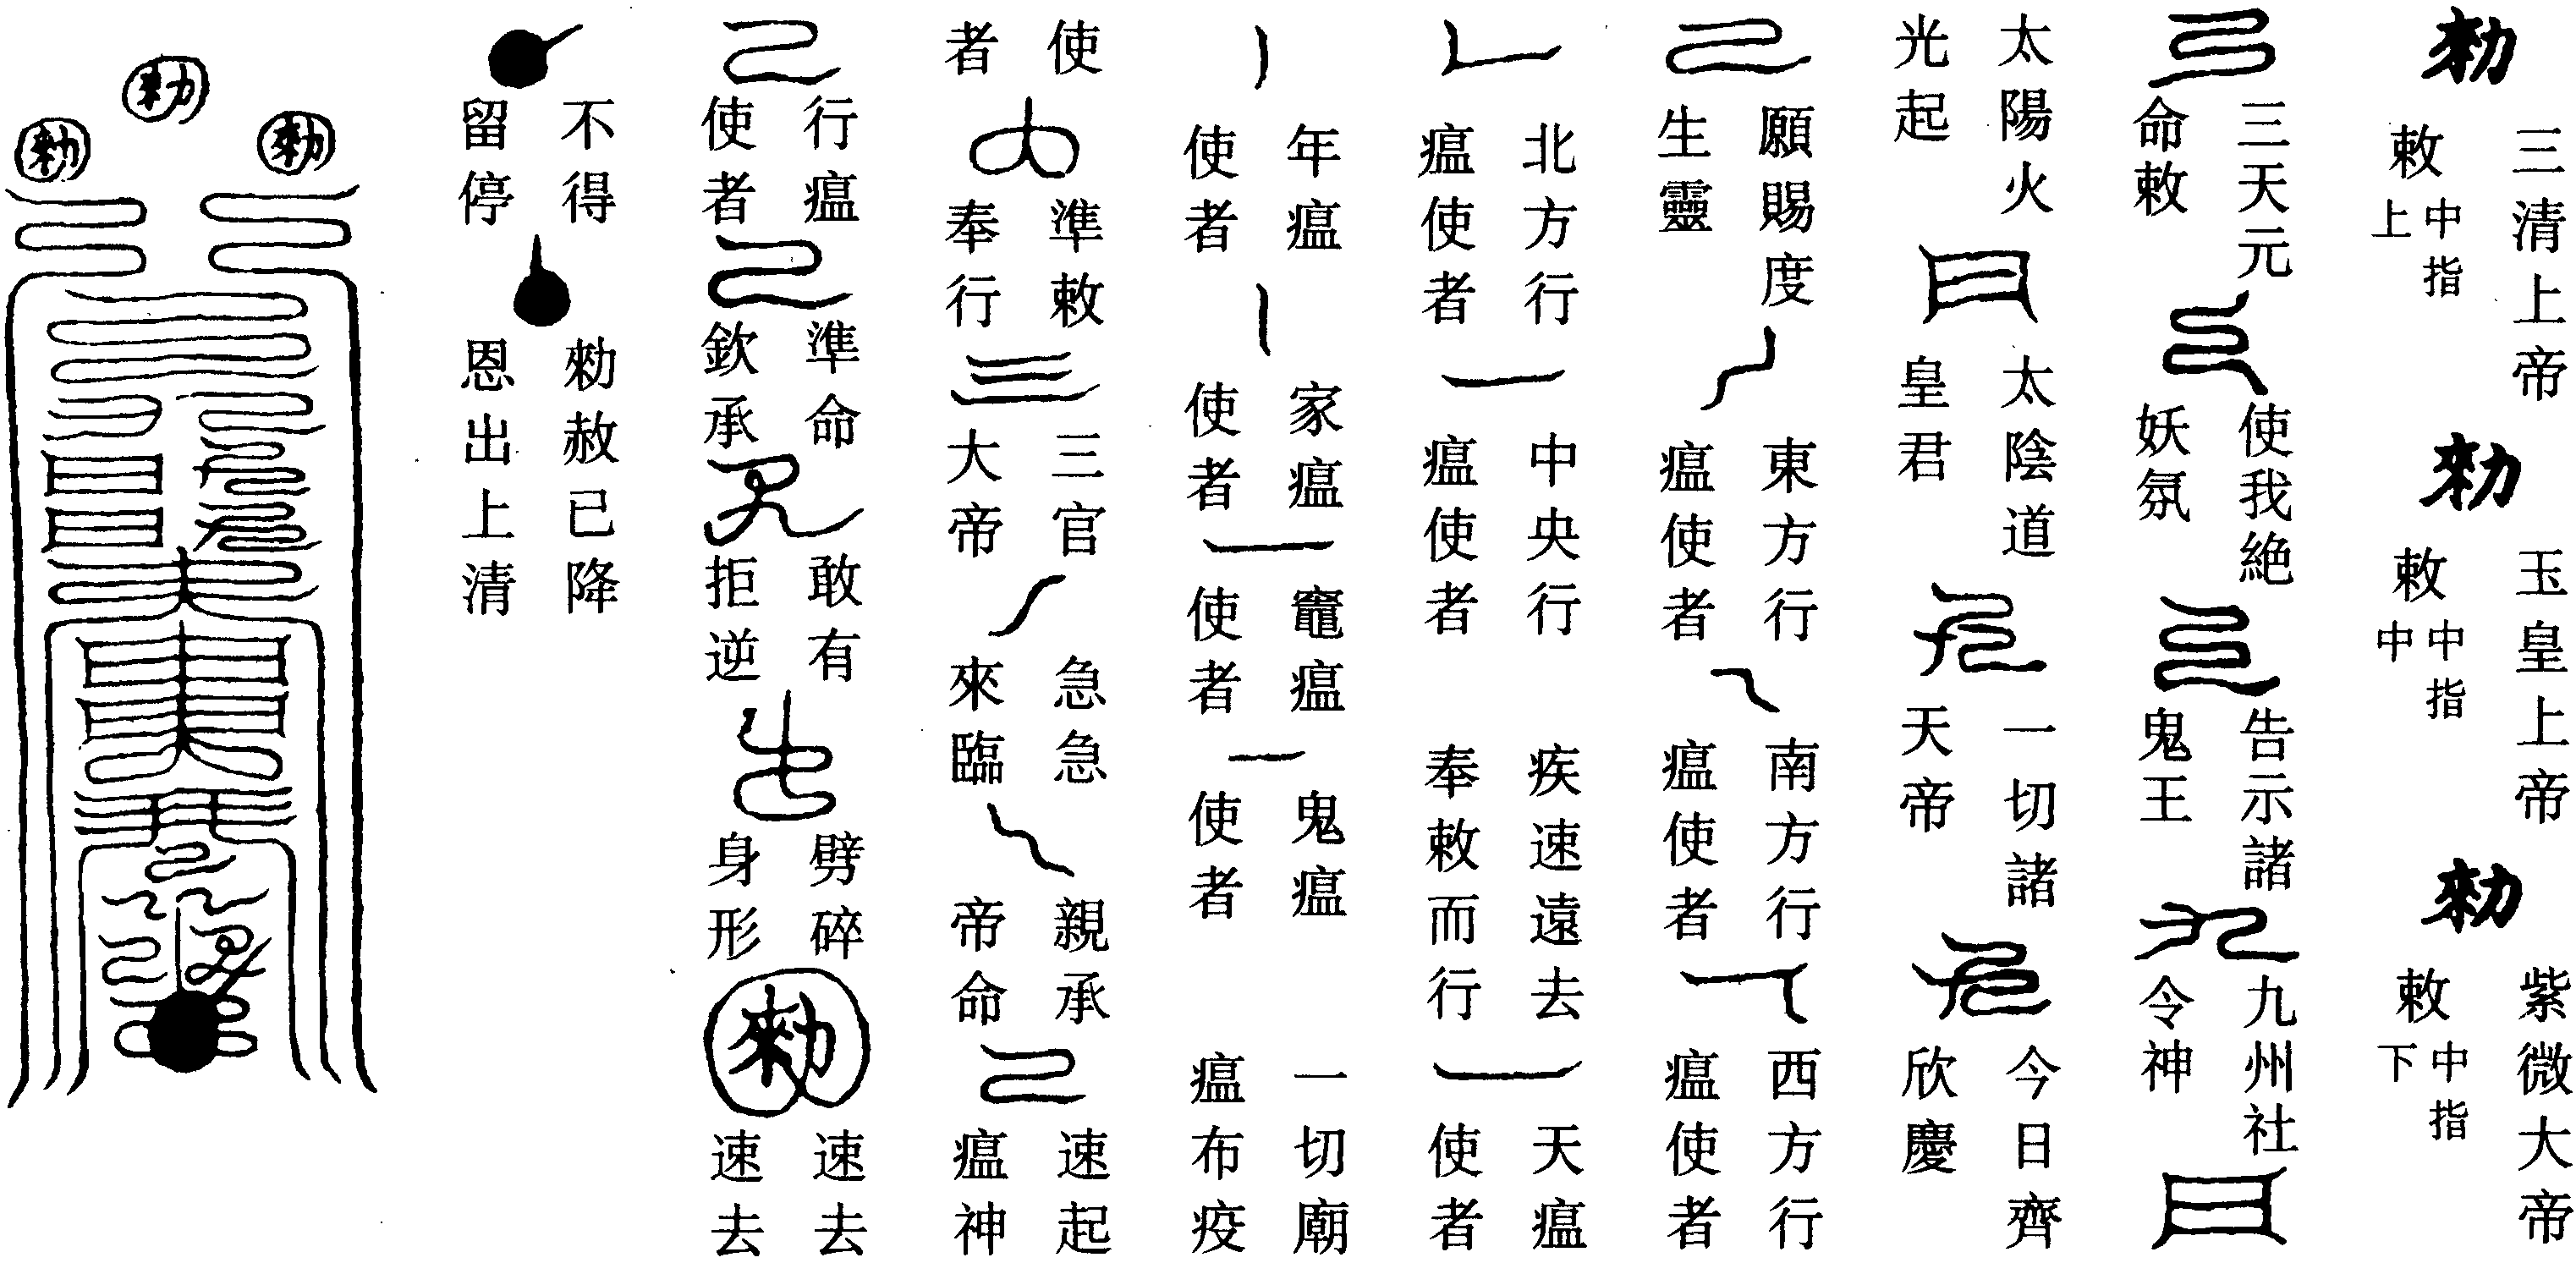 勑 三清上帝敕 中指上 勑 玉皇上帝敕 中指中 勑 紫微大帝敕 中指下
三天元命敕 使我絕妖氛 告示諸鬼王 九州社令神
太陽火光起 太陰道皇君 一切諸天帝 今日齊欣慶
願賜度生靈 東方行瘟使者 南方行瘟使者 西方行瘟使者
北方行瘟使者 中央行瘟使者 疾速遠去奉敕而行 天瘟使者
年瘟使者 家瘟使者 竈瘟使者 鬼瘟使者 一切廟瘟布疫
使者 準敕奉行 三官大帝 急急來臨 親承帝命 速起瘟神
行瘟使者 準命欽承 敢有拒逆 劈碎身形 勑 速去速去
不得留停 勑赦已降恩出上清
勑 勑 勑